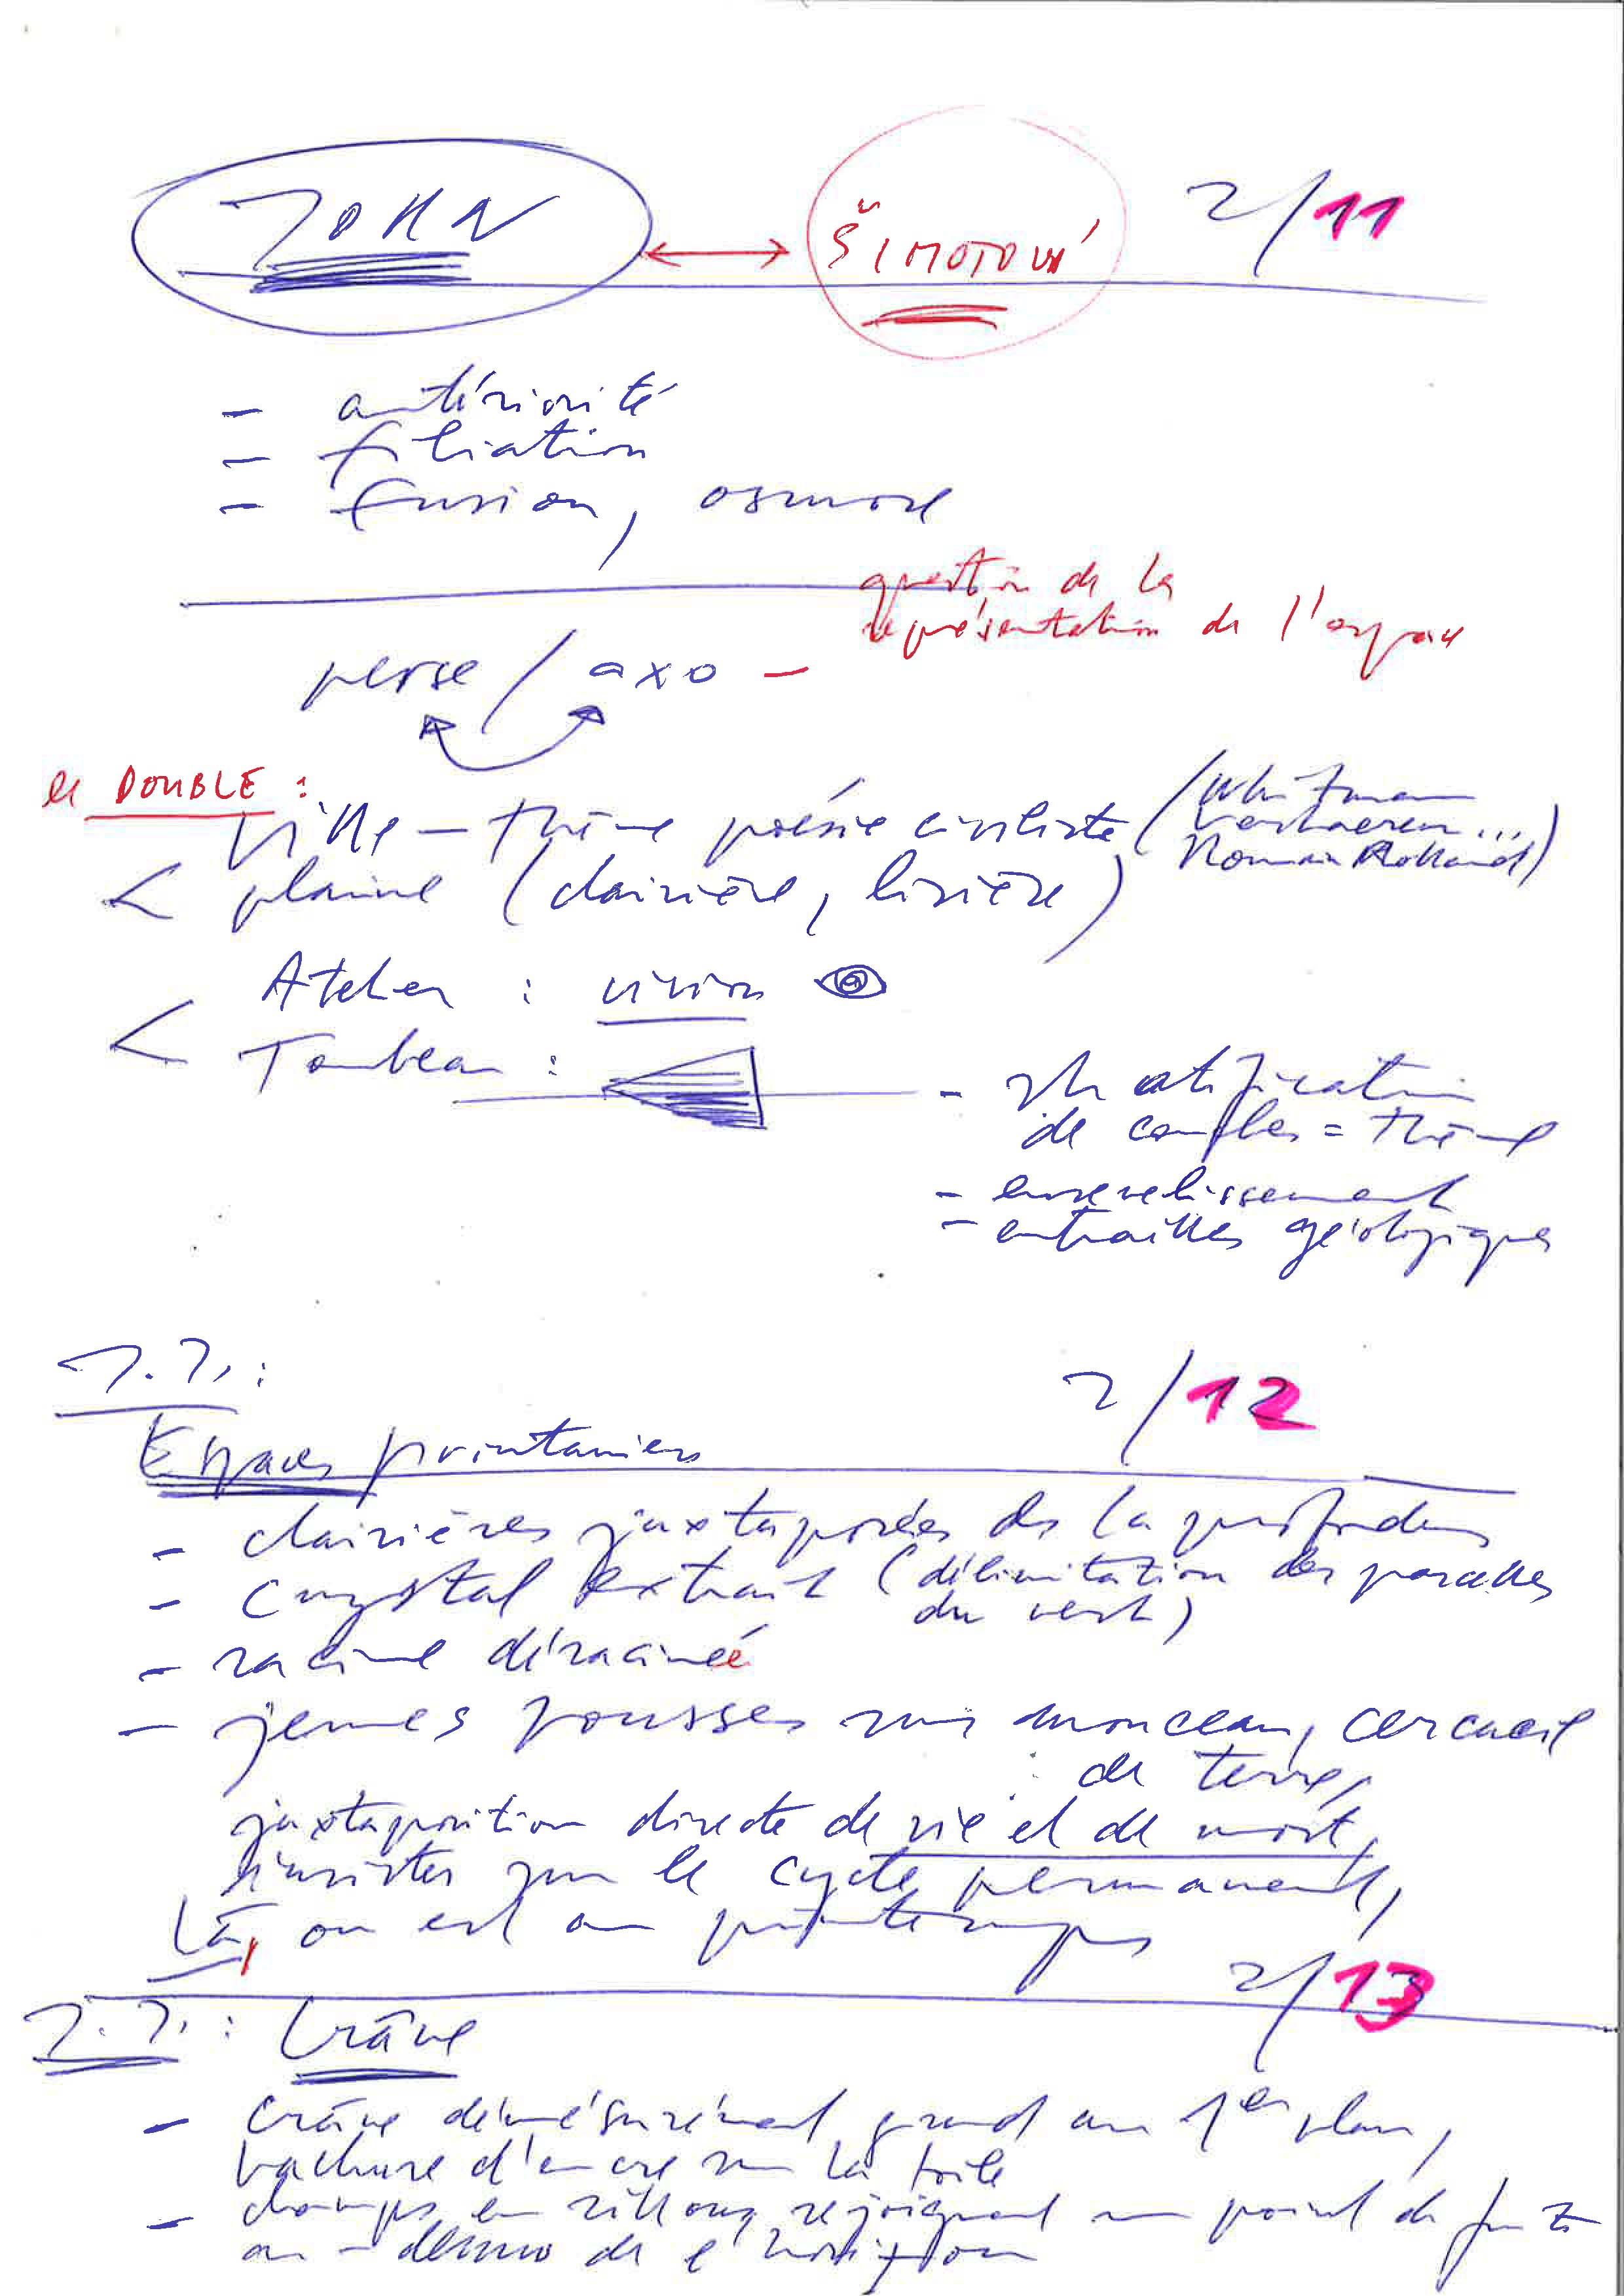 JOHN ↔ ŠIMOTOVÁ 2/11
- antériorité
- filiation
- fusion, osmose
question de la
représentation de l'espace
perse / axo -
le DOUBLE :
Ville - thème poésie civiliste (Whitman
Verhaeren...
Romain Rolland)
< plaine (clairière, lisière)
Atelier : vision
< Tombeau :
- stratification
de couches = thème
- ensevelissement
- entrailles géologiques
J.J. : 2/12
Espaces printaniers
- clairières juxtaposées ds la profondeur
- crystal extrait (délimitation des parcelles
du vert)
- racine déracinée
- jeunes pousses sur monceau, cercueil
de terre,
juxtaposition directe de vie et de mort,
insister sur le cycle permanent,
Là, on est au printemps
2/13
J.J. : Crâne
- Crâne démésurément grand au 1er plan,
hachure d'encre sur la toile
- champs en sillons, rejoignant un point de fuite
au-dessus de l'horizon